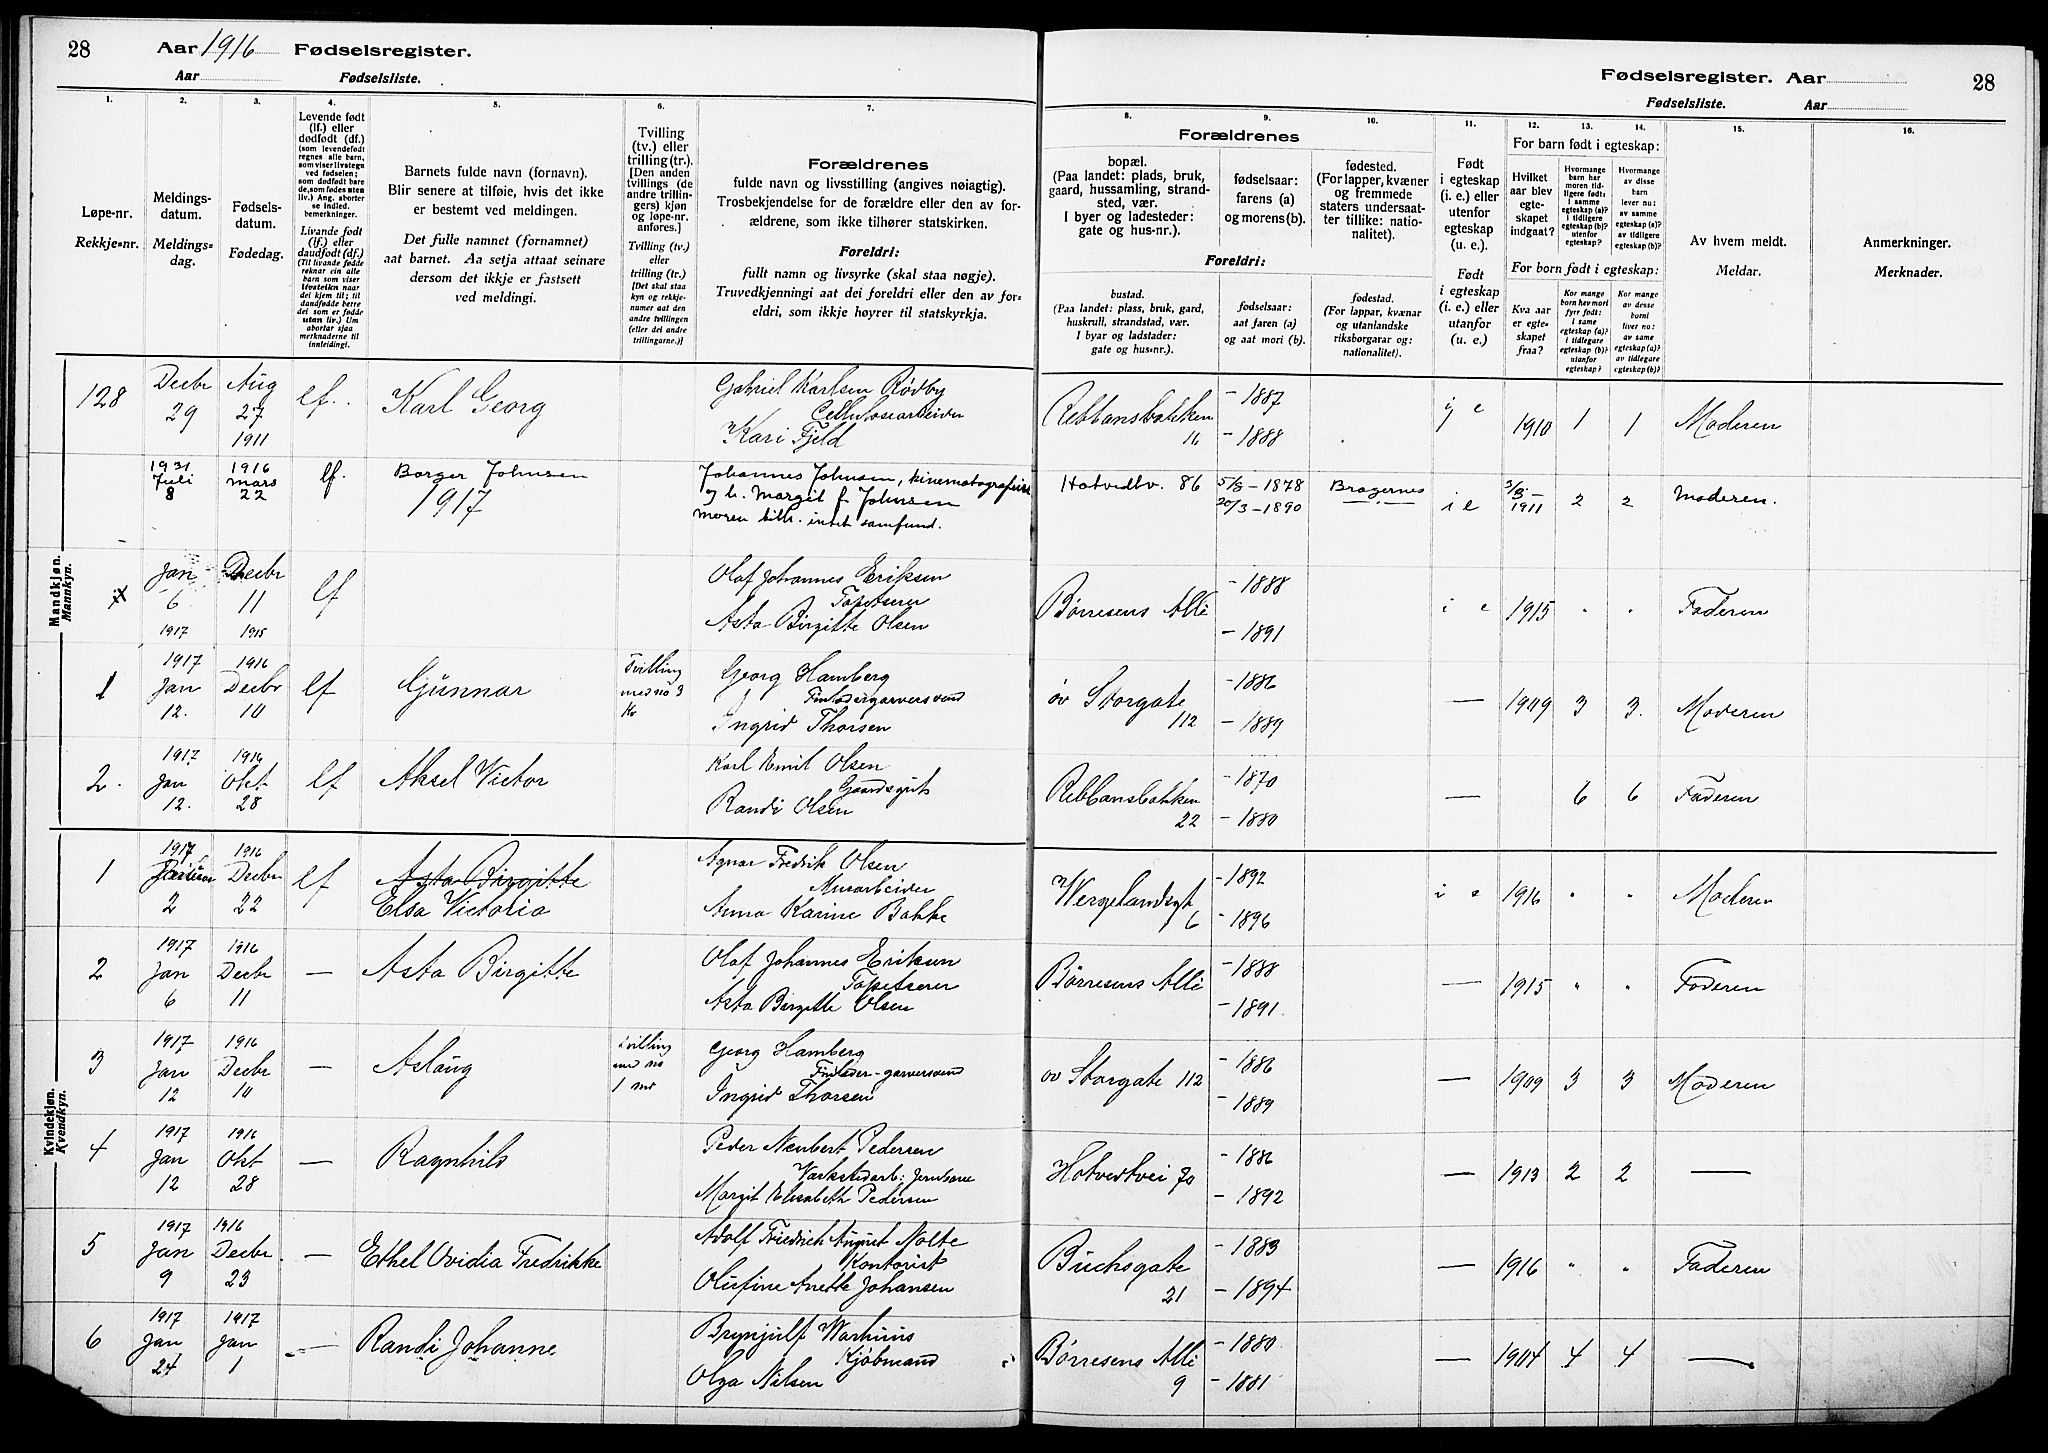 28 Aar 1916 Fødselsregister.
Aar Fødselsliste.
Fødselsregister. Aar 28
Fødselsliste. Aar
1. 2. 3. 4. 5. 6. 7. 8. 9. 10. 11. 12. 13. 14. 15. 16.
Løpe-nr.
Rekkje-nr.
Meldings-
datum.
Meldings-
dag.
Fødsels-
datum.
Fødedag.
Levende født
(lf.) eller
dødfødt (df.)
(som levendefødt
regnes alle barn,
som viser livstegn
ved fødselen;
som dødfødt bare
de, som fødes uten
liv.) Ang. aborter
se indled.
bemerkninger.
Livande født
(lf.) eller
daudfødt (df.)
(Til livande fødde
reknar ein alle
barn som viser
livsteikn naar
dei kjem til; til
daudfødde berre
dei som er fødde
utan liv.) Um
abortar sjaa
merknaderne til
innleidingi.
Barnets fulde navn (fornavn).
Blir senere at tilføie, hvis det ikke
er bestemt ved meldingen.
Det fulle namnet (fornamnet)
aat barnet. Aa setja attaat seinare
dersom det ikkje er fastsett
ved meldingi.
Tvilling
(tv.) eller
trilling (tr.).
[Den anden
tvillings (de
andre trillin-
gers) kjøn
og løpe-nr.
anføres.]
Tvilling (tv.)
eller
trilling (tr.)
[Det skal staa
kyn og rekkje-
numer aat den
andre tvillingen
(eller dei andre
trillingarne.)]
Forældrenes
fulde navn og livsstilling (angives nøiagtig).
Trosbekjendelse for de forældre eller den av for-
ældrene, som ikke tilhører statskirken.
Foreldri:
fullt namn og livsyrke (skal staa nøgje).
Truvedkjenningi aat dei foreldri eller den av for-
eldri, som ikkje høyrer til statskyrkja.
Forældrenes
bopæl.
(Paa landet: plads, bruk,
gaard, hussamling, strand-
sted, vær.
I byer og ladesteder:
gate og hus-nr.).
fødselsaar:
farens (a)
og morens (b).
fødested.
(For lapper, kvæner
og fremmede
staters undersaat-
ter tillike: natio-
nalitet).
Foreldri:
bustad.
(Paa landet: plass, bruk, gard,
huskrull, strandstad, vær.
I byar og ladstader:
gate og hus-nr.).
fødselsaar:
aat faren (a)
og aat mori (b).
fødestad.
(For lappar, kvænar
og utanlandske
riksborgarar og:
nationalitet).
Født
i egteskap
(i. e.) eller
utenfor
egteskap
(u. e.).
Født
i egteskap
(i. e.) eller
utanfor
(u. e.)
For barn født i egteskap:
Hvilket
aar blev
egte-
skapet
indgaat?
Hvormange
barn har
moren tid-
ligere født:
i samme
egteskap (a)?
i tidligere
egteskap (b)?
utenfor
egteskap?
Hvormange
av disse
barn
lever nu:
av samme
egteskap (a)?
av tidligere
egteskap (b)?
For born født i egteskap:
Kva aar
er egte-
skapet
fraa?
Kor mange
born hev mori
fyrr født:
i same
egteskap (a)?
i tidlegare
egteskap (b)?
utanfor
egteskap?
Kor mange
av desse
borni
liver no:
av same
egteskap (a)?
av tidlegare
egteskap (b)?
Av hvem meldt.
Meldar.
Anmerkninger.
Merknader.
Mandkjøn.
Mannkyn.
128 Decbr 29 Aug 27 1911 lf. Karl Georg
Gabriel Karlsen Rødby
Cellulosearbeider
Kari Fjeld
Rebbansbakken 16 - 1887 - 1888 i e 1910 1 1 Moderen
1931 Juli 8 1916 mars 22 lf. Borger Johnsen
1917
Johannes Johnsen, kinematografeier
og h. Margit f. Johnsen
Moren tilh. intet samfund.
Hotvedtv. 86 - 1878 20/3 - 1890 Bragernes i e 1911 2 2 Moderen.
Jan 6 1917 Decbr 11 1915 lf
Olaf Johannes Eriksen
Tapetserer
Asta Birgitte Olsen
Børresens Alle - 1888 - 1891 i e 1915 " " Faderen
1 1917 Jan 12. 1916 Decbr 10 lf Gunnar
Tvilling
med no 3
Kv
Georg Hamberg
Finlædergarversvend
Ingrid Thorsen
øv Storgate 112 - 1886 - 1889 — 1909 3 3. Moderen
2. 1917 Jan 12. 1916 Okt 28 lf Aksel Victor
Karl Emil Olsen
Gaardsgut
Randi Olsen
Rebbansbakken 22 - 1870 - 1880 — 6 6 Faderen
Kvindekjøn.
Kvendkyn.
1 1917 Januar 2 1916 Decbr 22 lf Asta Birgitte
Elsa Victoria
Agnar Fredrik Olsen
Murarbeider
Anna Karine Bakke
Wergelandsgt 6 - 1892 - 1896 i e 1916 " " Moderen
2 1917 Jan 6 1916 Decbr 11 — Asta Birgitte
Olaf Johannes Eriksen
Tapetserer
Asta Birgitte Olsen
Børresens Alle - 1888 - 1891 — 1915 " " Faderen
3 1917 Jan 12 1916 Decbr 10 — Aslaug
Tvilling
med no
1 m
Georg Hamberg
Finlæder-garversvend
Ingrid Thorsen
øv Storgate 112 - 1886 - 1889 — 1909 3 3 Moderen
4 1917 Jan 12 1916 Okt 28 — Ragnhild
Peder Neubert Pedersen
Værkstedarb: Jernbane
Margit Elisabeth Pedersen
Hotvedtvei 70 - 1886 - 1892 — 1913 2 2 —
5 1917 Jan 9 1916 Decbr 23 — Ethel Ovidia Fredrikke
Adolf Friedrich August Nolte
Kontorist
Olufine Anette Johansen
Buchsgate 21 - 1883 - 1894 — 1916 " " Faderen
6 1917 Jan 24 1917 Jan 1 — Randi Johanne
Brynjulf Warhuus
Kjøbmand
Olga Nilsen
Børresens Alle 9 - 1880 - 1881 — 1904 4 4 —